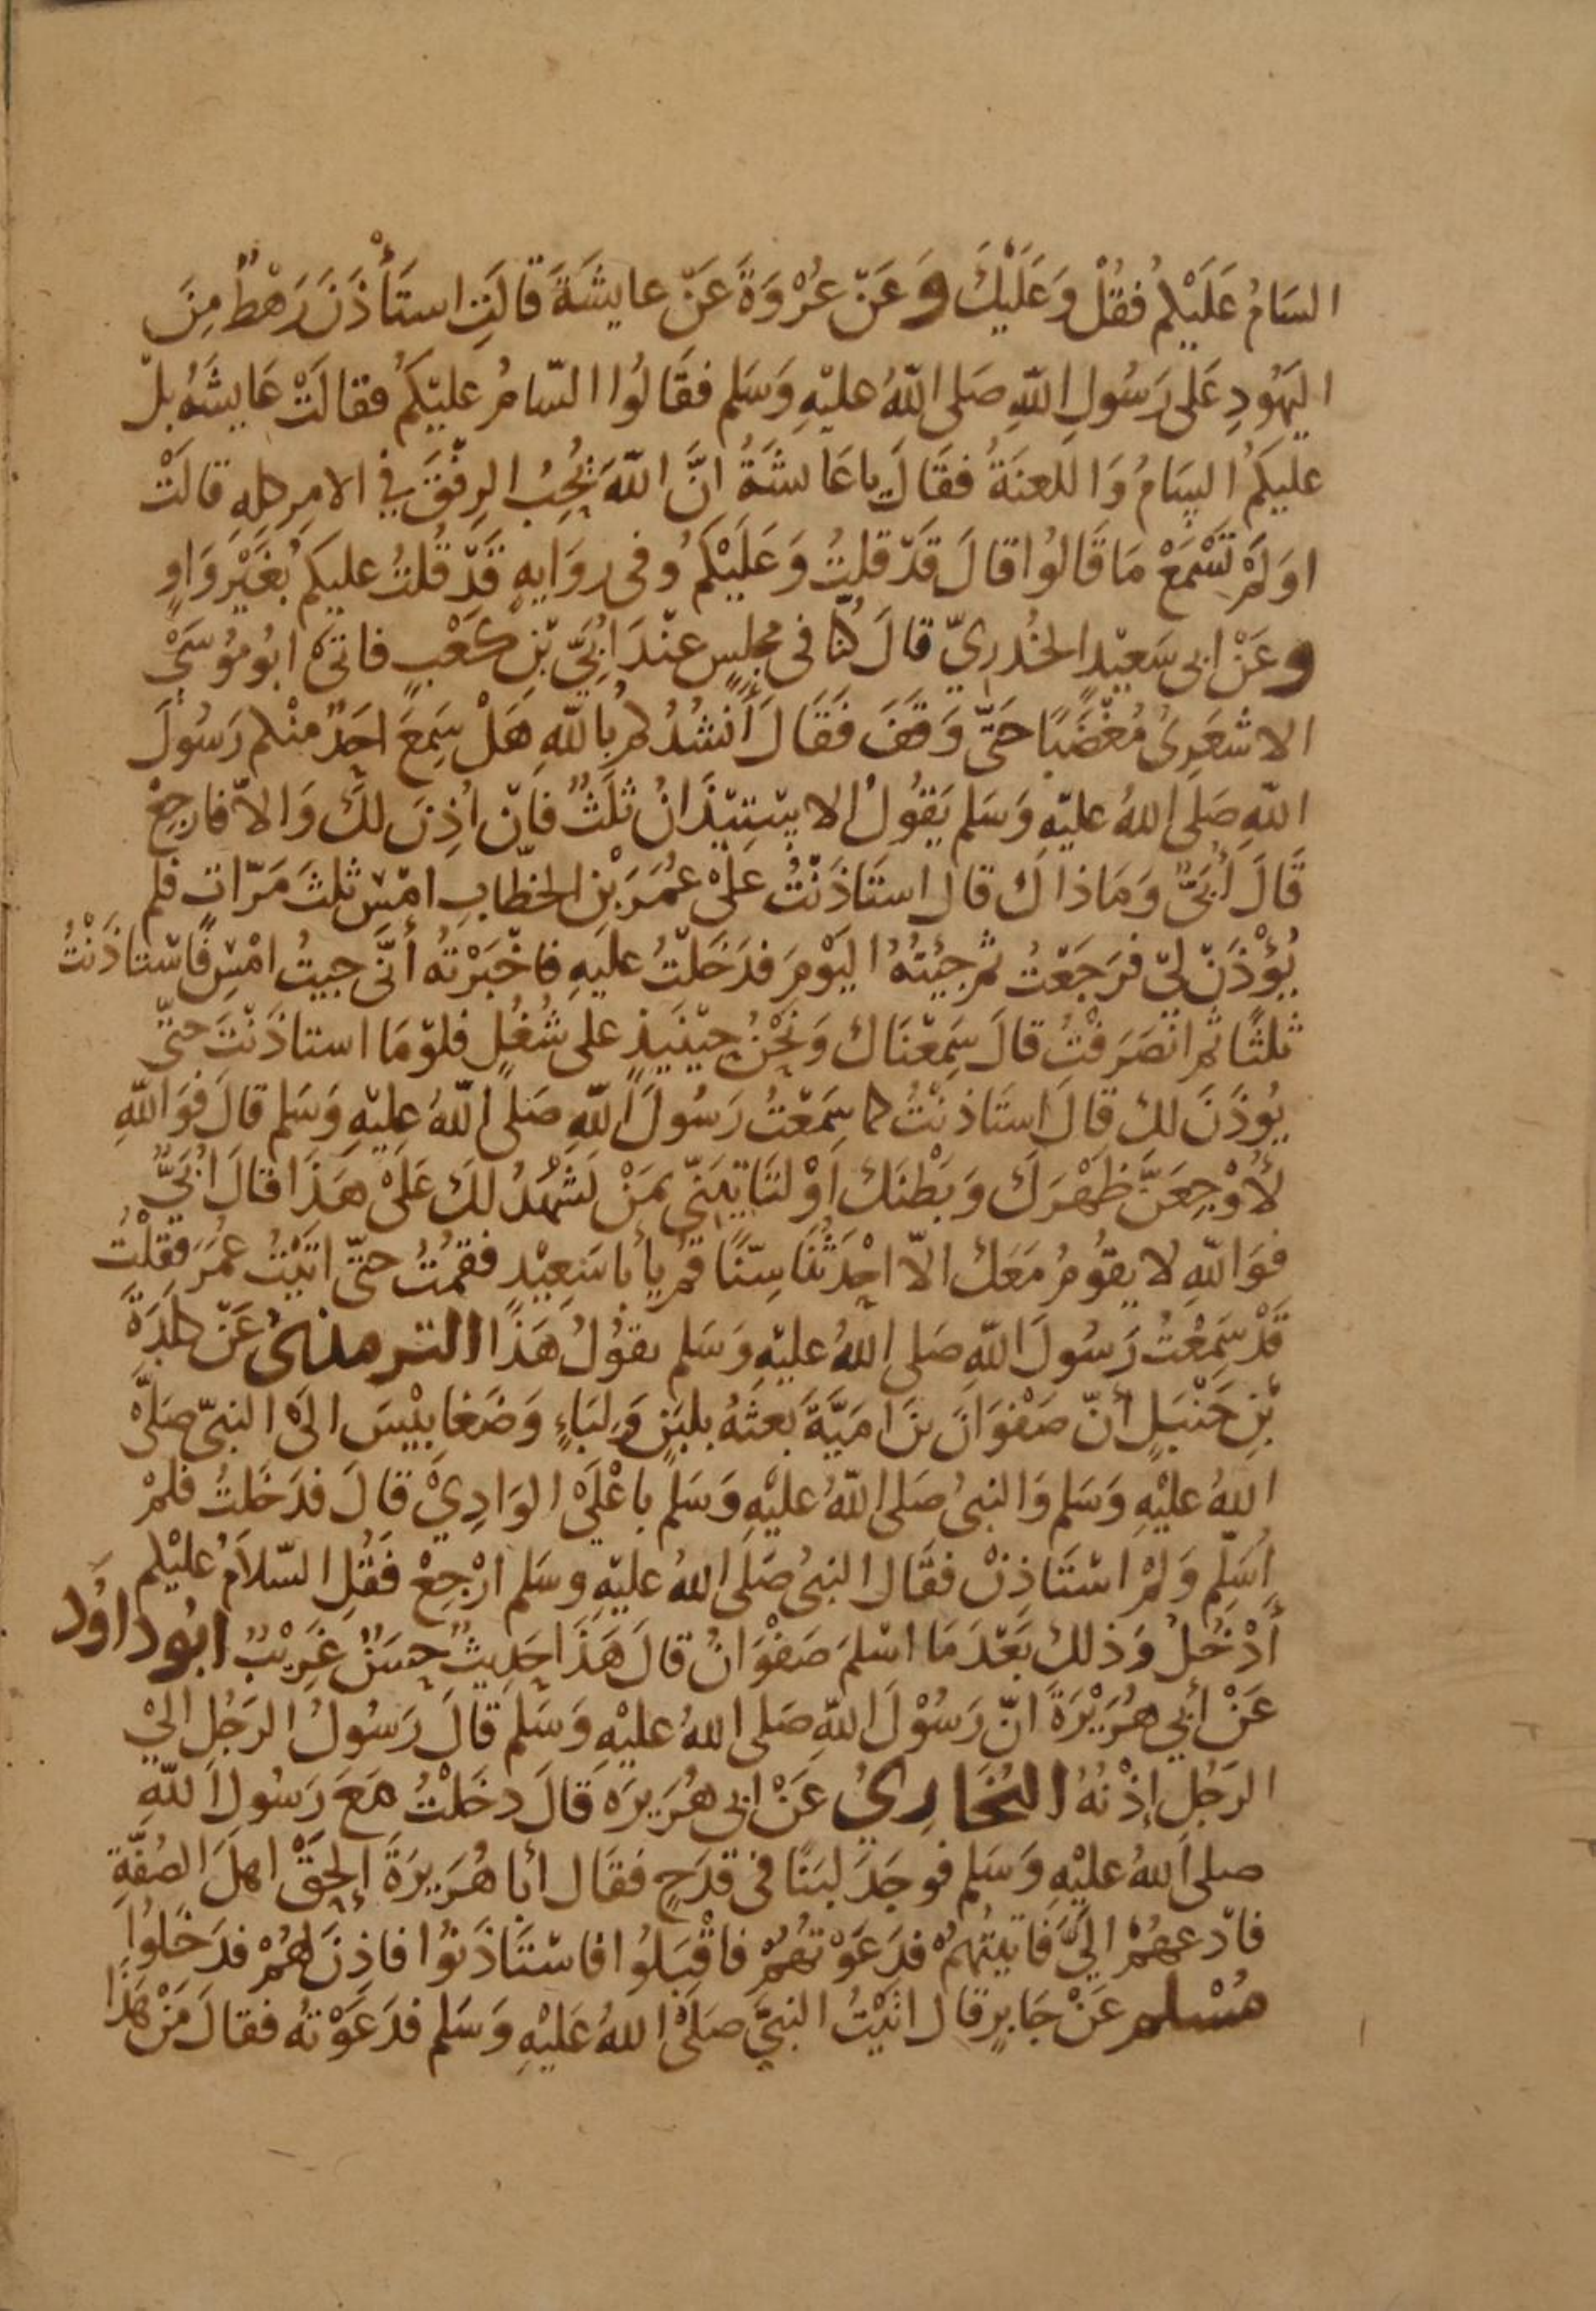 السَامُ عَلَيْكم فقُلْ وَعَلَيْكَ وَعَنْ عُرْوَةَ عَنْ عايشَةَ قالَتِ استَأْذَنَ رَهْطٌ مِنَ
اليَهُودِ عَلى رَسُولِ اللّهِ صَلى اللّهُ عليْهِ وَسَلم فقَالوُا السّامُ عليْكمُ فقالَتْ عَايشَهُ بلْ
عليكمُ السَامُ وَاللعنَةُ فقَالَ ياعَائشَةُ انَّ اللّهَ يُحِبُ الرِفْقَ فِي الامرِ كلهِ قالَتْ
اوَلمْ تَسْمَعْ مَا قَالوُا قالَ قَدْ قلتُ وَعَلَيْكمُ وفى روَايهٍ قَدْ قُلتُ عليكمُ بغَيْرِ وَاوٍ
وعَنْ ابى سَعيْدٍ الخُدريّ قالَ كُنّا فى مجلسٍ عنْدَ ابُيَّ بْنِ كعْبٍ فاتىَ ابُو مُوُسَىْ
الاشعَرِىُ مُغْضَبًا حَتىَّ وَقفَ فقَالَ أنْشُدُ كمُ بُاللّهِ هَلْ سَمِعَ احَدٌ منْكم رَسُولَ
اللّهِ صَلى اللهُ عليْهِ وَسَلم يَقوُلُ الاستيْذَانُ ثلَثٌ فانْ اُذِنَ لكَ وَالاّ فارجِعْ
قَالَ اُبَىٌّ وَمَاذاكَ قال استَاذَنْتُ عَلىْ عُمَرَ بْنِ الخطّابِ امْسِ ثلثَ مَرّاتٍ فلم
يُؤْذَنْ لىْ فرَجَعْتُ ثم جِئتُهُ اليَوْمَ فدَخَلْتُ عليهِ فاخْبَرْتهُ أنىَّ جيتُ امْسِ فاسْتاذَنْتُ
ثلثًا ثم انْصَرَفْتُ قالَ سَمِعْنَاكَ وَنَحْنُ حيْنَيذٍ على شُغُلٍ فلوْ مَا استاذَنْتَ حتىّ
يُوْذَنَ لكَ قالَ استَاذنْتُ كما سَمِعْتُ رَسُولَ اللّهِ صَلى اللّهُ عليْهِ وَسَلم قالَ فوَاللّهِ
لَأُوْجِعَنَّ ظَهْرَكَ وَبَطْنكَ اوْ لتَاتِيَنيّ بمَنْ يَشْهَدُ لكَ عَلىْ هَذَا قالَ اُبَىٌّ
فوَاللّهِ لا يقوُمُ مَعَكَ الاّ احْدَثُنَا سِنًّا قُمْ يا أبا سَعِيْدٍ فقمْتُ حتىّ اتَيْتُ عُمَرَ فقلْتُ
قَدْ سَمِعْتُ رَسُولَ اللّهِ صَلى اللهُ عليْهِ وَسَلم يقوُلُ هَذَا الترمذىُ عَنْ كلدَةَ
بْنِ حَنْبَلٍ أنّ صَفْوَانَ بنَ امَيَّةَ بَعثَهُ بلبَنٍ وَلِبَاءٍ وَضَغابيْسَ الىَ النبىّ صَلىْ
اللهُ عليْهِ وَسَلم وَالنبىُ صَلى اللّهُ عليْهِ وَسَلم باعْلىَ الوَادِيْ قالَ فدَخلتُ فلمْ
اُسَلِّم وَلمْ اسْتَاذِنْ فقَال النبىُ صَلَى اللهُ عليْهِ وسَلم ارْجِعْ فَقُلِ السّلاَمُ عليْكم
أَدْخُلُ وَذلكَ بَعْدَ مَا اسْلمَ صَفْوَانُ قالَ هَذَا حَدِيثٌ حسَنٌ غَرِيْبٌ ابُو داوُد
عَنْ أبي هُرَيْرَةَ انّ رَسُوْلَ اللّهِ صَلى اللهُ عليْهِ وَسَلم قالَ رَسُولُ الرَجُلِ الىْ
الرَجُلِ إذْنُهُ البُخَارِيُ عَنْ ابى هُرَيرَه قَالَ دخَلْتُ مَعَ رَسُولِ اللّهِ
صلى اللهُ عليْهِ وَسَلم فوجَدَ لبَنًا فى قدَحٍ فقَال أبا هُرَيرَةَ إلحَقْ اهلَ الصُفّةِ
فادْعهُمْ الىَّ فاتيتُهمْ فدَعَوْتُهُمْ فاقْبَلوُا فاسْتَاذَنوُا فاذِنَ لهُمْ فدَخَلوُا
مُسْلم عَنْ جَابرٍ قال اتَيْتُ النبىَّ صَلىْ اللهُ عَليْهِ وَسَلم فدَعَوْتهُ فقالَ مَنْ هَذَا